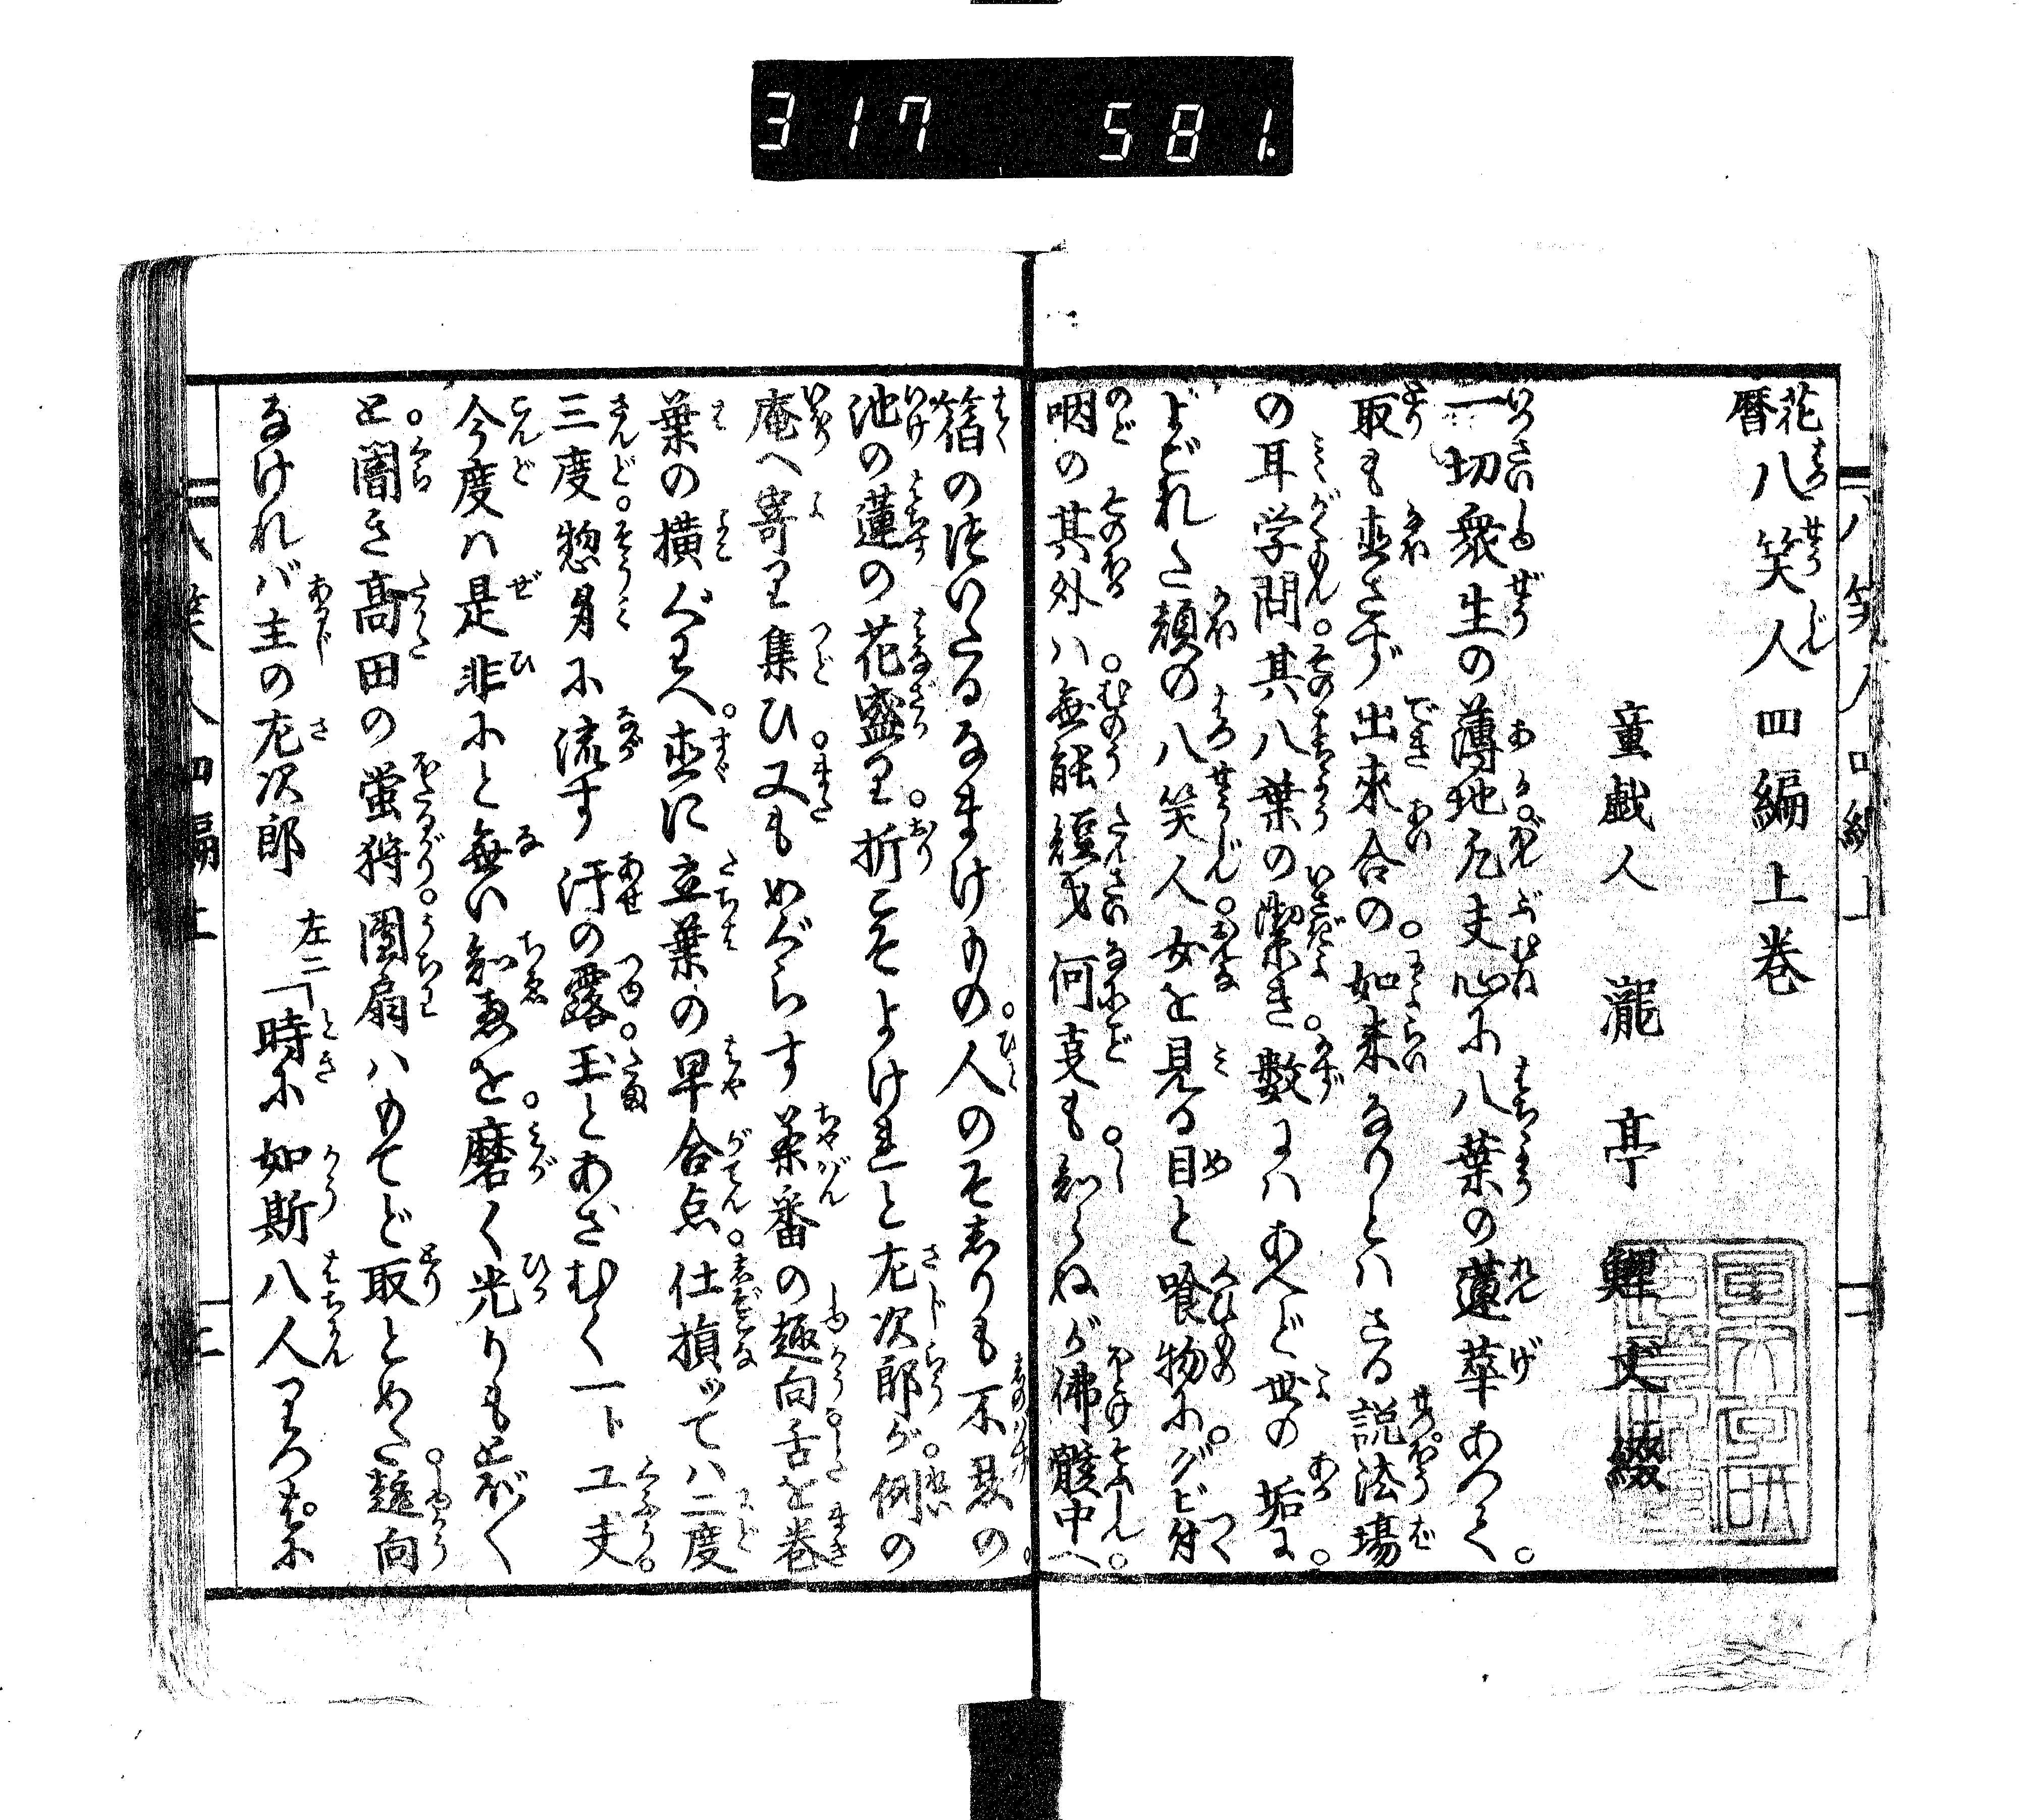 317 581.
花暦八笑人四編上巻
童戯人 瀧亭鯉丈綴
一切衆生の薄地凡夫心に八葉の蓮華あつて。
取も直さず出来合の。如来なりとハさる説法場
の耳学問其八葉の潔き。数にハあへど世の垢に。
よごれた顔の八笑人女を見る目と喰物に。グビ付
咽の其外ハ無能短才何事も。知らねが佛髄中へ
宿のはいたるなまけもの。人のそしりも不忍の。
池の蓮の花盛り。折こそよけれと左次郎が。例の
庵へ寄り集ひ。又もめぐらす茶番の趣向。舌を巻
葉の横ぐわへ。直に立葉の早合点。仕損ッてハ二度
三度。惣身に流す汗の露。玉とあざむく一ト工夫。
今度ハ是非にと無い知恵を。磨く光りも飛ぶ〳〵
と。闇き高田の蛍狩。團扇ハもてど取とめた。趣向
なけれバ主の左次郎 左二「時に如斯八人
八笑人四編上